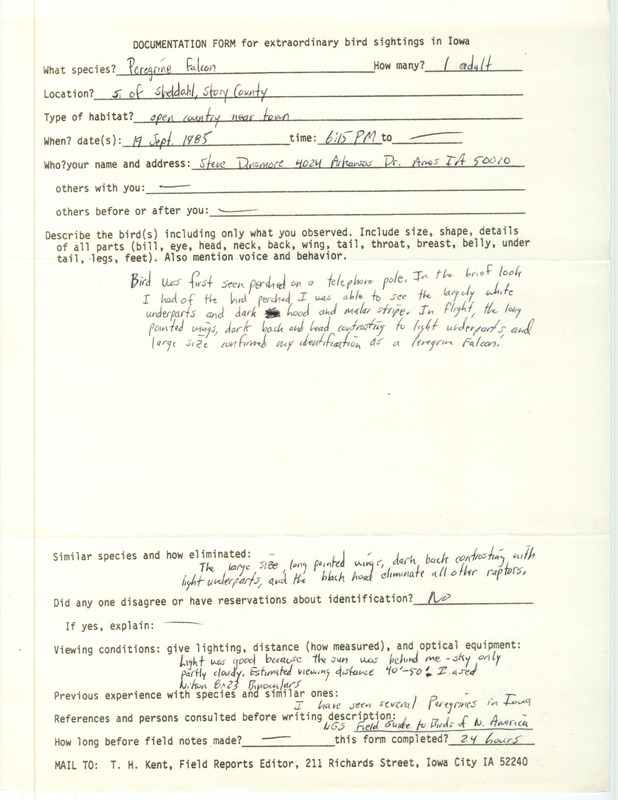 DOCUMENTATION FORM for extraordinary bird sightings in Iowa
What species? Peregrine Falcon How many? 1 adult
Location? S. of Sheldahl, Story County
Type of habitat? open country near town
When? date(s): 19 Sept. 1985 time: 6:15 PM to —
Who? your name and address: Steve Dinsmore 4024 Arkansas Dr. Ames IA 50010
others with you: —
others before or after you: —
Describe the bird(s) including only what you observed. Include size, shape, details
of all parts (bill, eye, head, neck, back, wing, tail, throat, breast, belly, under
tail, legs, feet). Also mention voice and behavior.
Bird was first seen perched on a telephone pole. In the brief look
I had of the bird perched, I was able to see the largely white
underparts and dark hood and malar stripe. In flight, the long
pointed wings, dark back and head contrasting to light underparts, and
large size confirmed my identification as a Peregrin Falcon.
Similar species and how eliminated:
The large size, long pointed wings, dark back contrasting with
light underparts, and the black hood eliminate all other raptors.
Did any one disagree or have reservations about identification? No
If yes, explain: —
Viewing conditions: give lighting, distance (how measured), and optical equipment:
Light was good because the sun was behind me - sky only
partly cloudy. Estimated viewing distance 40'-50'. I used
Nikon 8x23 Binoculars
Previous experience with species and similar ones:
I have seen several Peregrines in Iowa
References and persons consulted before writing description:
NGS Field Guide to Birds of N. America
How long before field notes made? — this form completed? 24 hours
MAIL TO: T. H. Kent, Field Reports Editor, 211 Richards Street, Iowa City IA 52240